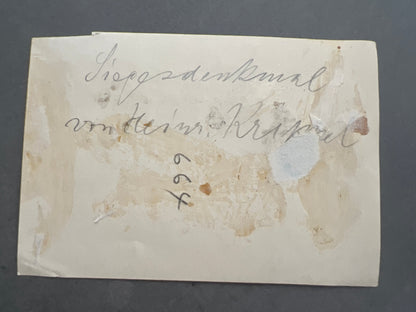 Siegesdenkmal
von Heinr. Krippel